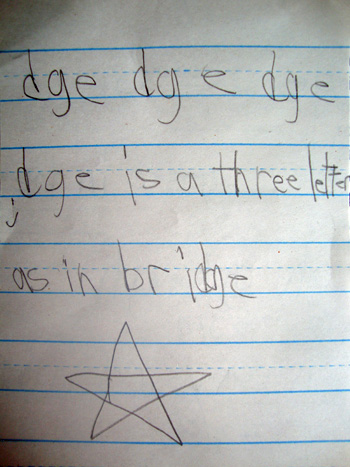 dge dg e dge
dge is a three letter
j
as in bridge